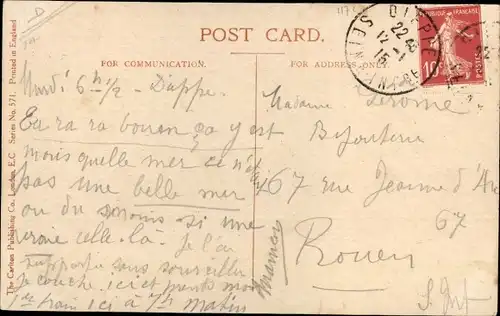 POST CARD.
FOR COMMUNICATION.
FOR ADDRESS ONLY.
The Carlton Publishing Co., London, E.C. Series No. 571. Printed in England
DIEPPE
SEINE INFRE
22
12 - 1
15
REPUBLIQUE FRANÇAISE
10
POSTES
Mardi 6h 1/2 - Dieppe.
ça y est
mais quelle mer ce n'est
pas une belle mer
ou du moins si une
celle-là. Je l'ai
supporté sans sourciller
Je couche ici et prends mon
1er train ici à 7h matin
Maman
Madame Jerome
Bijouterie
67 rue Jeanne d'Arc
67
Rouen
S. Inf